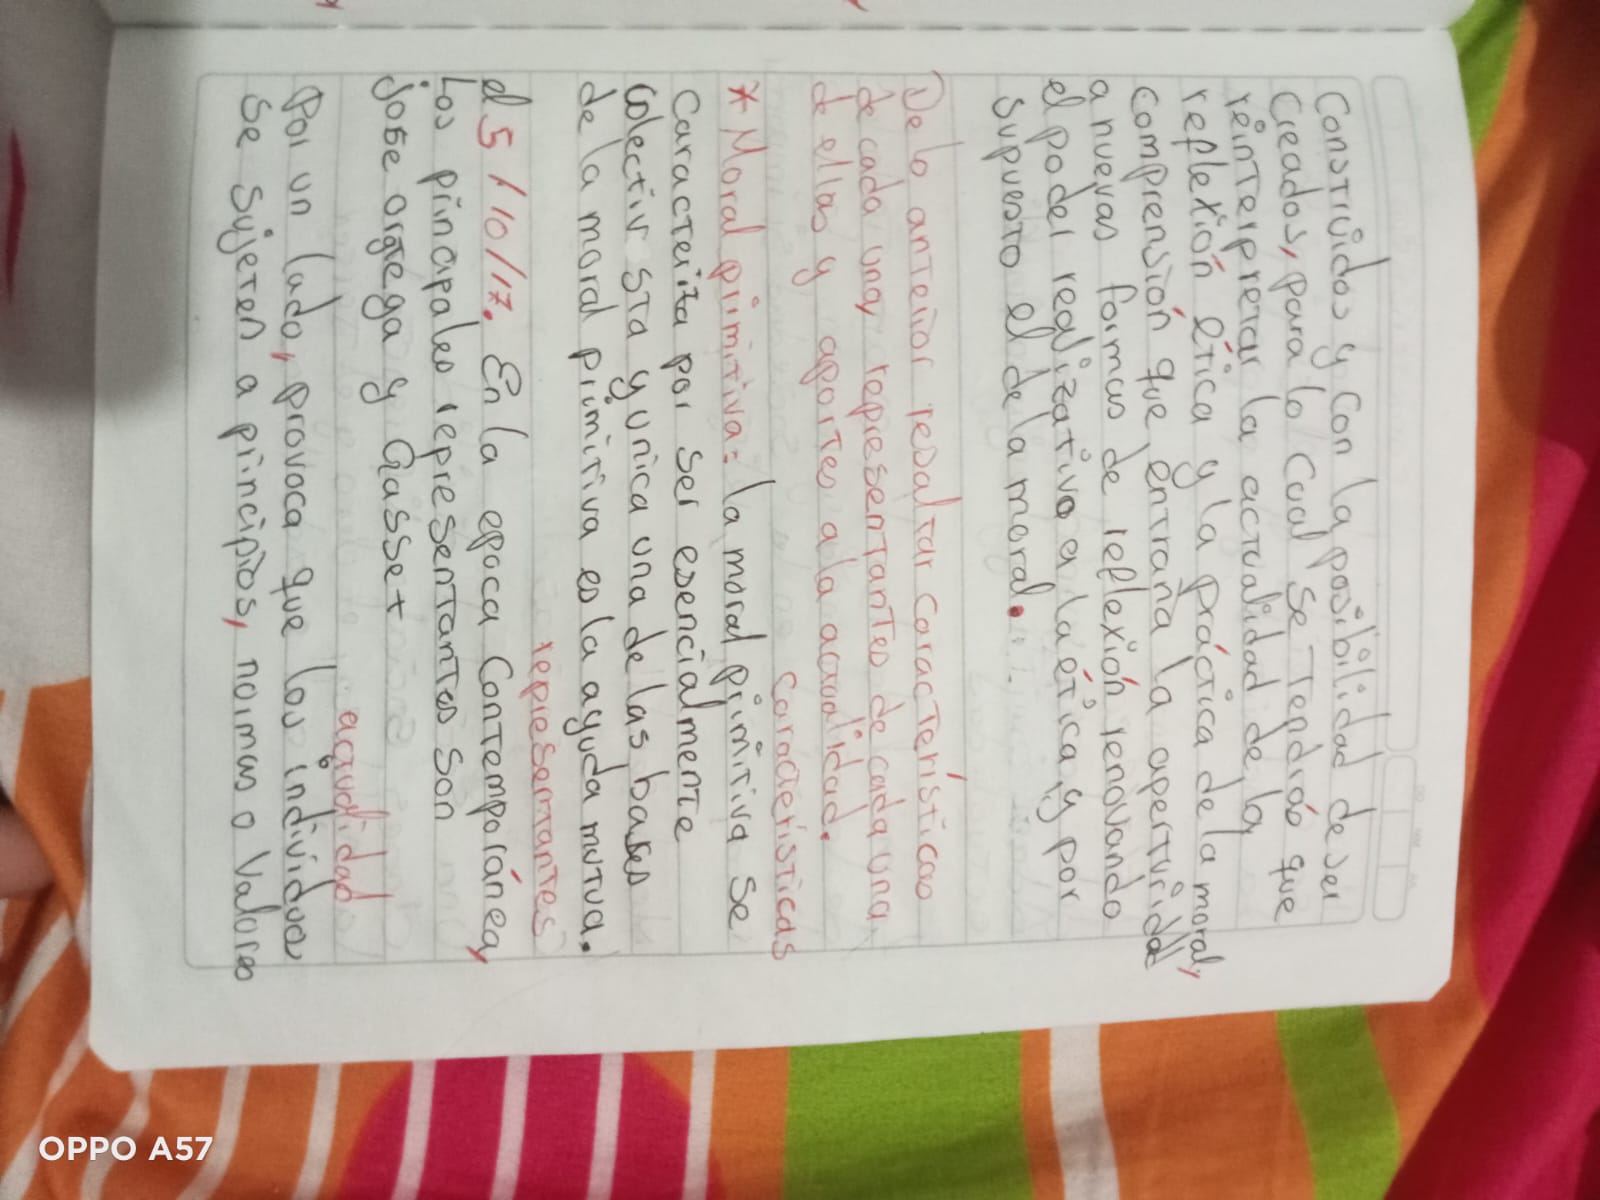 Construidos y con la posibilidad de ser
Creados, para lo Cual se Tendrás que
reinterpretar la actualidad de la
reflexión ética y la práctica de la moral,
Comprensión que entraña la aperturidad
a nuevas formas de reflexión renovando
el poder realizativo a la ética, y por
supuesto el de la moral.
De lo anterior resaltar características
de cada una, representantes de cada una
de ellas y aportes a la actualidad.
Características
* Moral primitiva: la moral primitiva se
Caracteriza por ser esencialmente
Colectiv sta y única una de las bases
de la moral primitiva es la ayuda mutua.
representantes
el 5 / 10/17. En la epoca Contemporánea,
Los principales representantes son
jose ortega y Gasset
acaudlidad
Por un lado, provoca que los individuos
se sujeten a principios, normas o Valores
OPPO A57